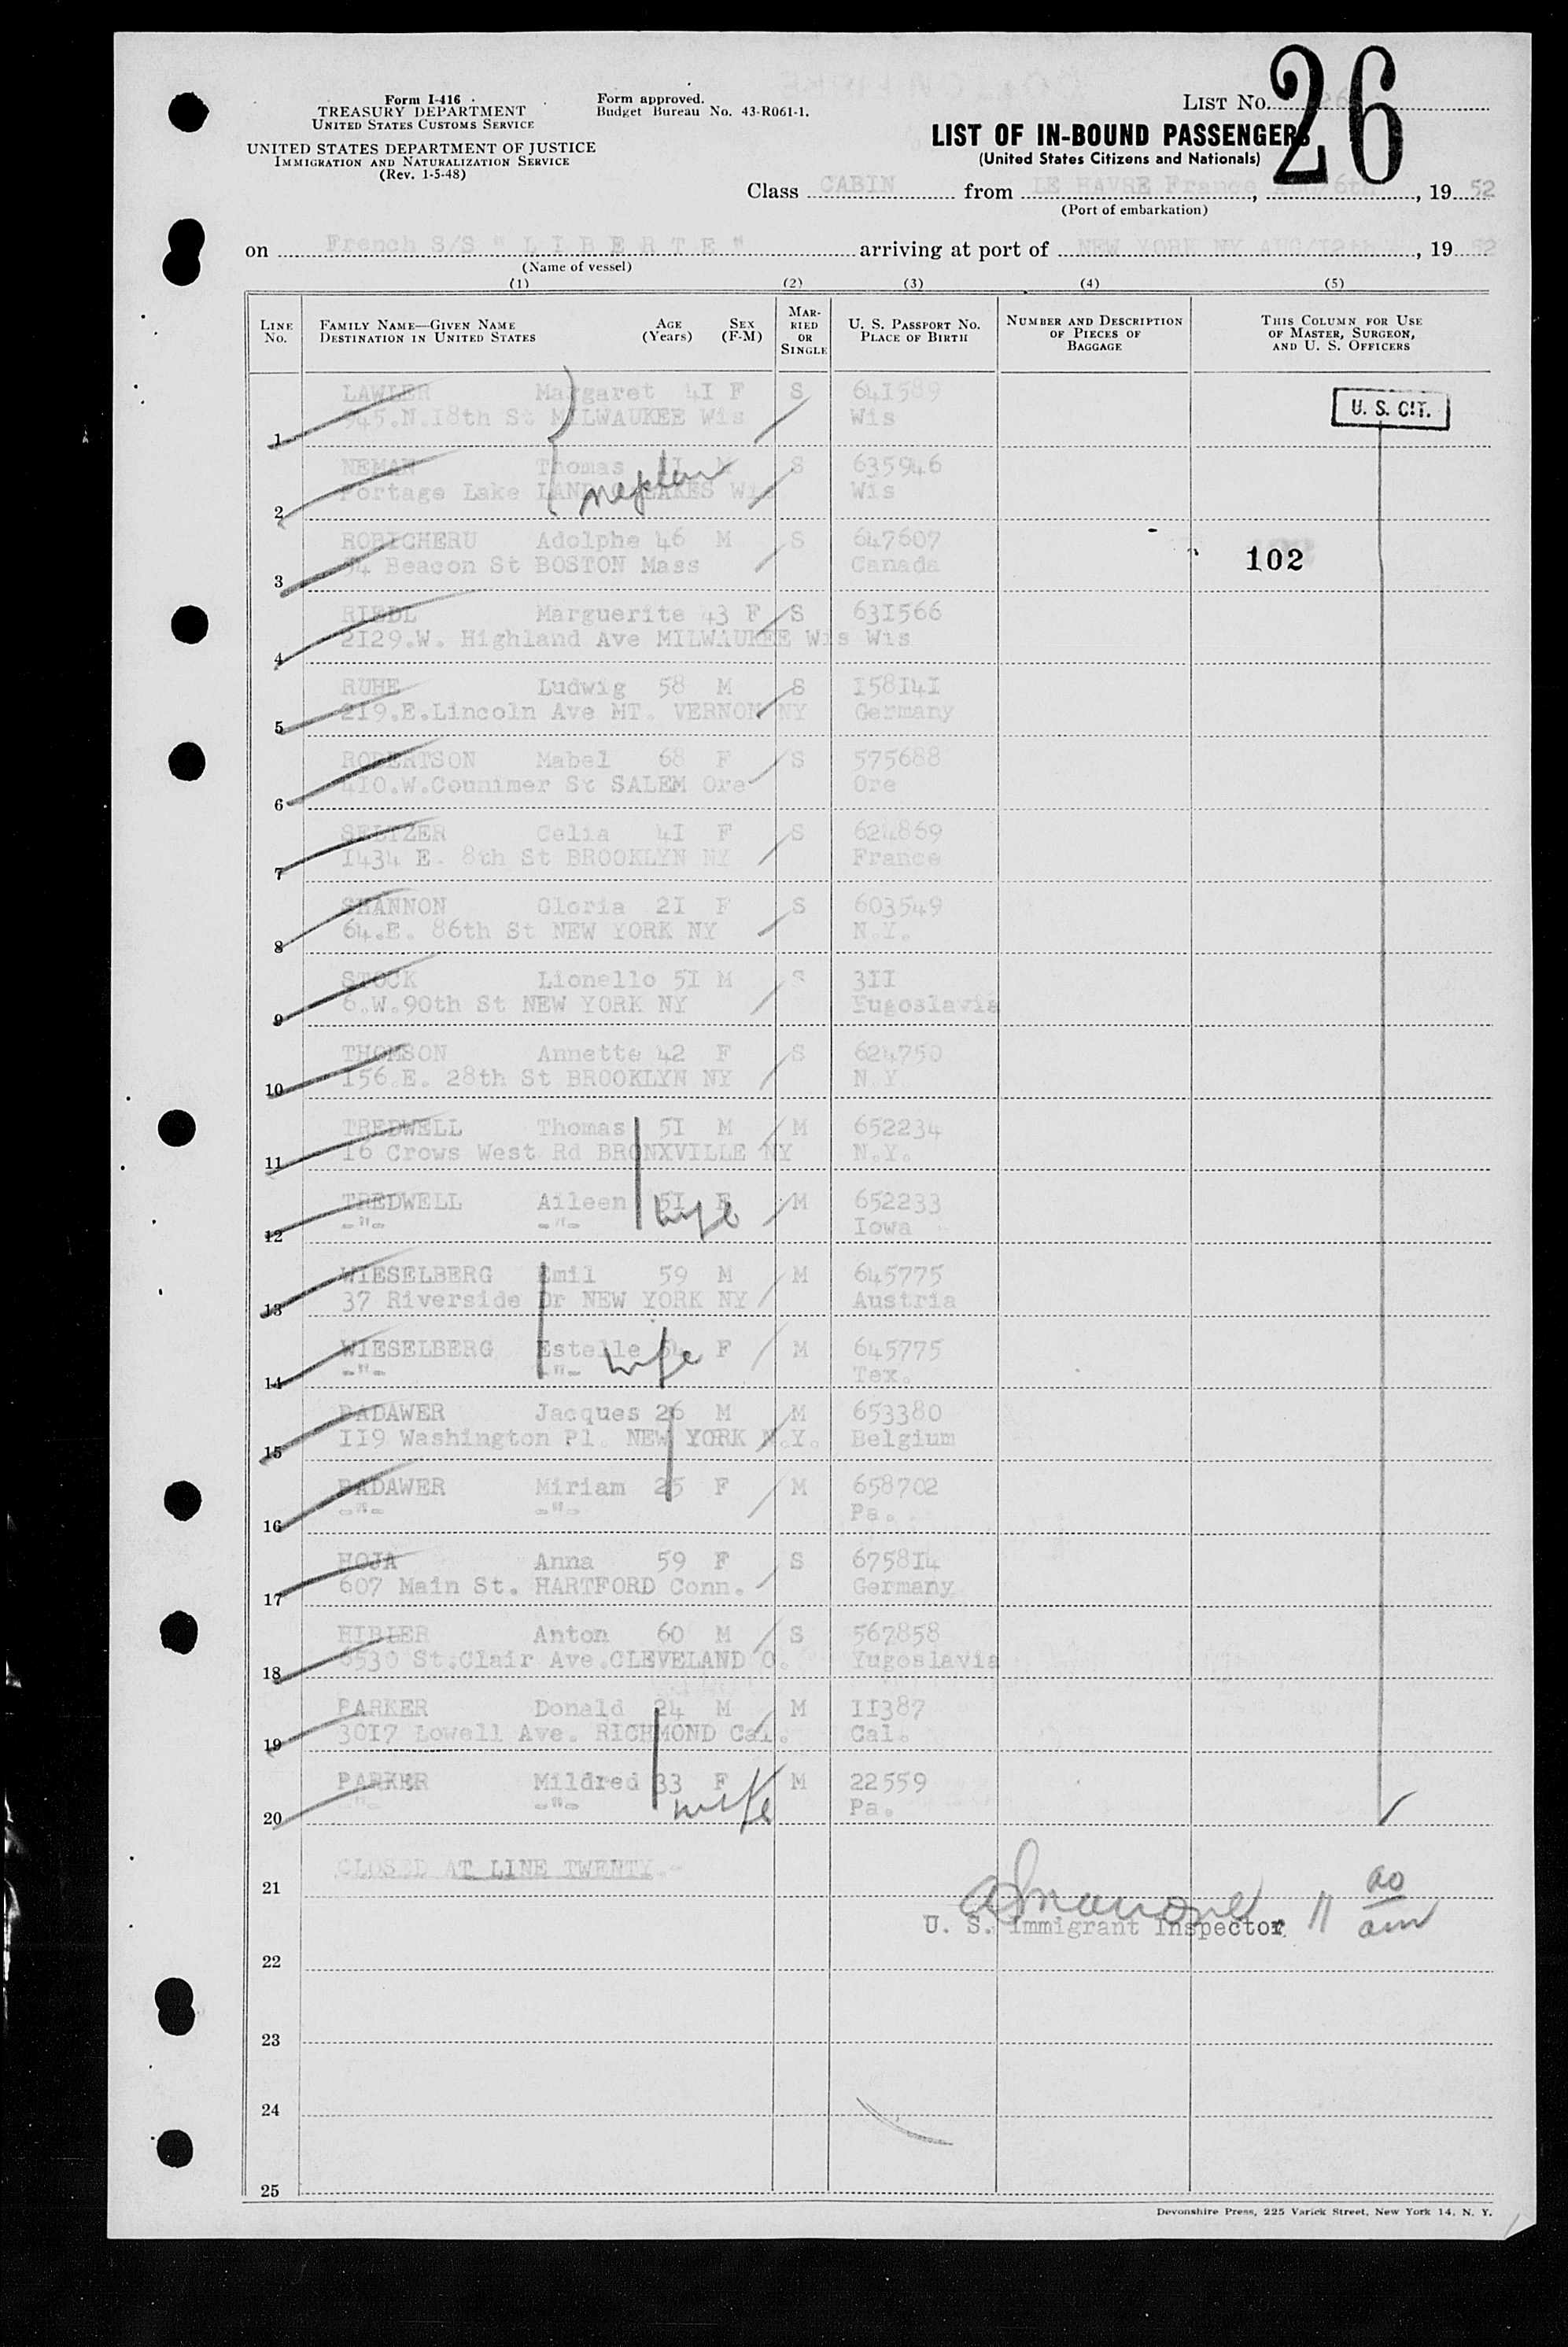 Form I-416
TREASURY DEPARTMENT
UNITED STATES CUSTOMS SERVICE
UNITED STATES DEPARTMENT OF JUSTICE
IMMIGRATION AND NATURALIZATION SERVICE
(Rev. 1-5-48)
Form approved.
Budget Bureau No. 43-R061-1.
LIST NO.
26
LIST OF IN-BOUND PASSENGERS
(United States Citizens and Nationals)
Class CABIN from LE HAVRE France 6th, 19 52
(Port of embarkation)
on French S/S "LIBERTE" arriving at port of NEW YORK NY AUG/12th, 19 52
(Name of vessel)
(1) (2) (3) (4) (5)
LINE NO. FAMILY NAME—GIVEN NAME DESTINATION IN UNITED STATES AGE (Years) SEX (F-M) MARRIED OR SINGLE U. S. PASSPORT NO. PLACE OF BIRTH NUMBER AND DESCRIPTION OF PIECES OF BAGGAGE THIS COLUMN FOR USE OF MASTER, SURGEON, AND U. S. OFFICERS
LAWLER Margaret 4I F S 64I589 U. S. CIT.
1 945.N.I8th St MILWAUKEE Wis Wis
NEMAN Thomas M S 635946
2 Portage Lake LAND LAKES Wis Wis
ROBICHERU Adolphe 46 M S 647607
3 Beacon St BOSTON Mass Canada 102
RIEDL Marguerite 43 F S 63I566
4 2I29.W. Highland Ave MILWAUKEE Wis Wis
RUHE Ludwig 58 M S I58I4I
5 2I9.E.Lincoln Ave MT. VERNON NY Germany
ROBERTSON Mabel 68 F S 575688
6 4I0.W.Counimer St SALEM Ore Ore
SELTZER Celia 4I F S 624869
7 I434 E. 8th St BROOKLYN NY France
SHANNON Gloria 2I F S 603549
8 64.E. 86th St NEW YORK NY N.Y.
STOCK Lionello 5I M S 3II
9 6.W.90th St NEW YORK NY Yugoslavia
THOMSON Annette 42 F S 624750
10 I56.E. 28th St BROOKLYN NY N Y
TREDWELL Thomas 5I M M 652234
11 I6 Crows West Rd BRONXVILLE NY N.Y.
TREDWELL Aileen 5I F wife M 652233
12 -"- -"- Iowa
WIESELBERG Emil 59 M M 645775
13 37 Riverside Dr NEW YORK NY Austria
WIESELBERG Estelle wife F M 645775
14 -"- -"- Tex.
BADAWER Jacques 26 M M 653380
15 II9 Washington Pl. NEW YORK N.Y. Belgium
BADAWER Miriam 25 F M 658702
16 -"- -"- Pa.
HOJA Anna 59 F S 6758I4
17 607 Main St. HARTFORD Conn. Germany
HIBLER Anton 60 M S 567858
18 6530 St.Clair Ave.CLEVELAND O. Yugoslavia
PARKER Donald 24 M M II387
19 30I7 Lowell Ave. RICHMOND Cal. Cal.
PARKER Mildred 33 F M 22559
20 -"- -"- wife Pa.
CLOSED AT LINE TWENTY.-
21
U. S. Immigrant Inspector 11 00 am
22
23
24
25
Devonshire Press, 225 Varick Street, New York 14, N. Y.